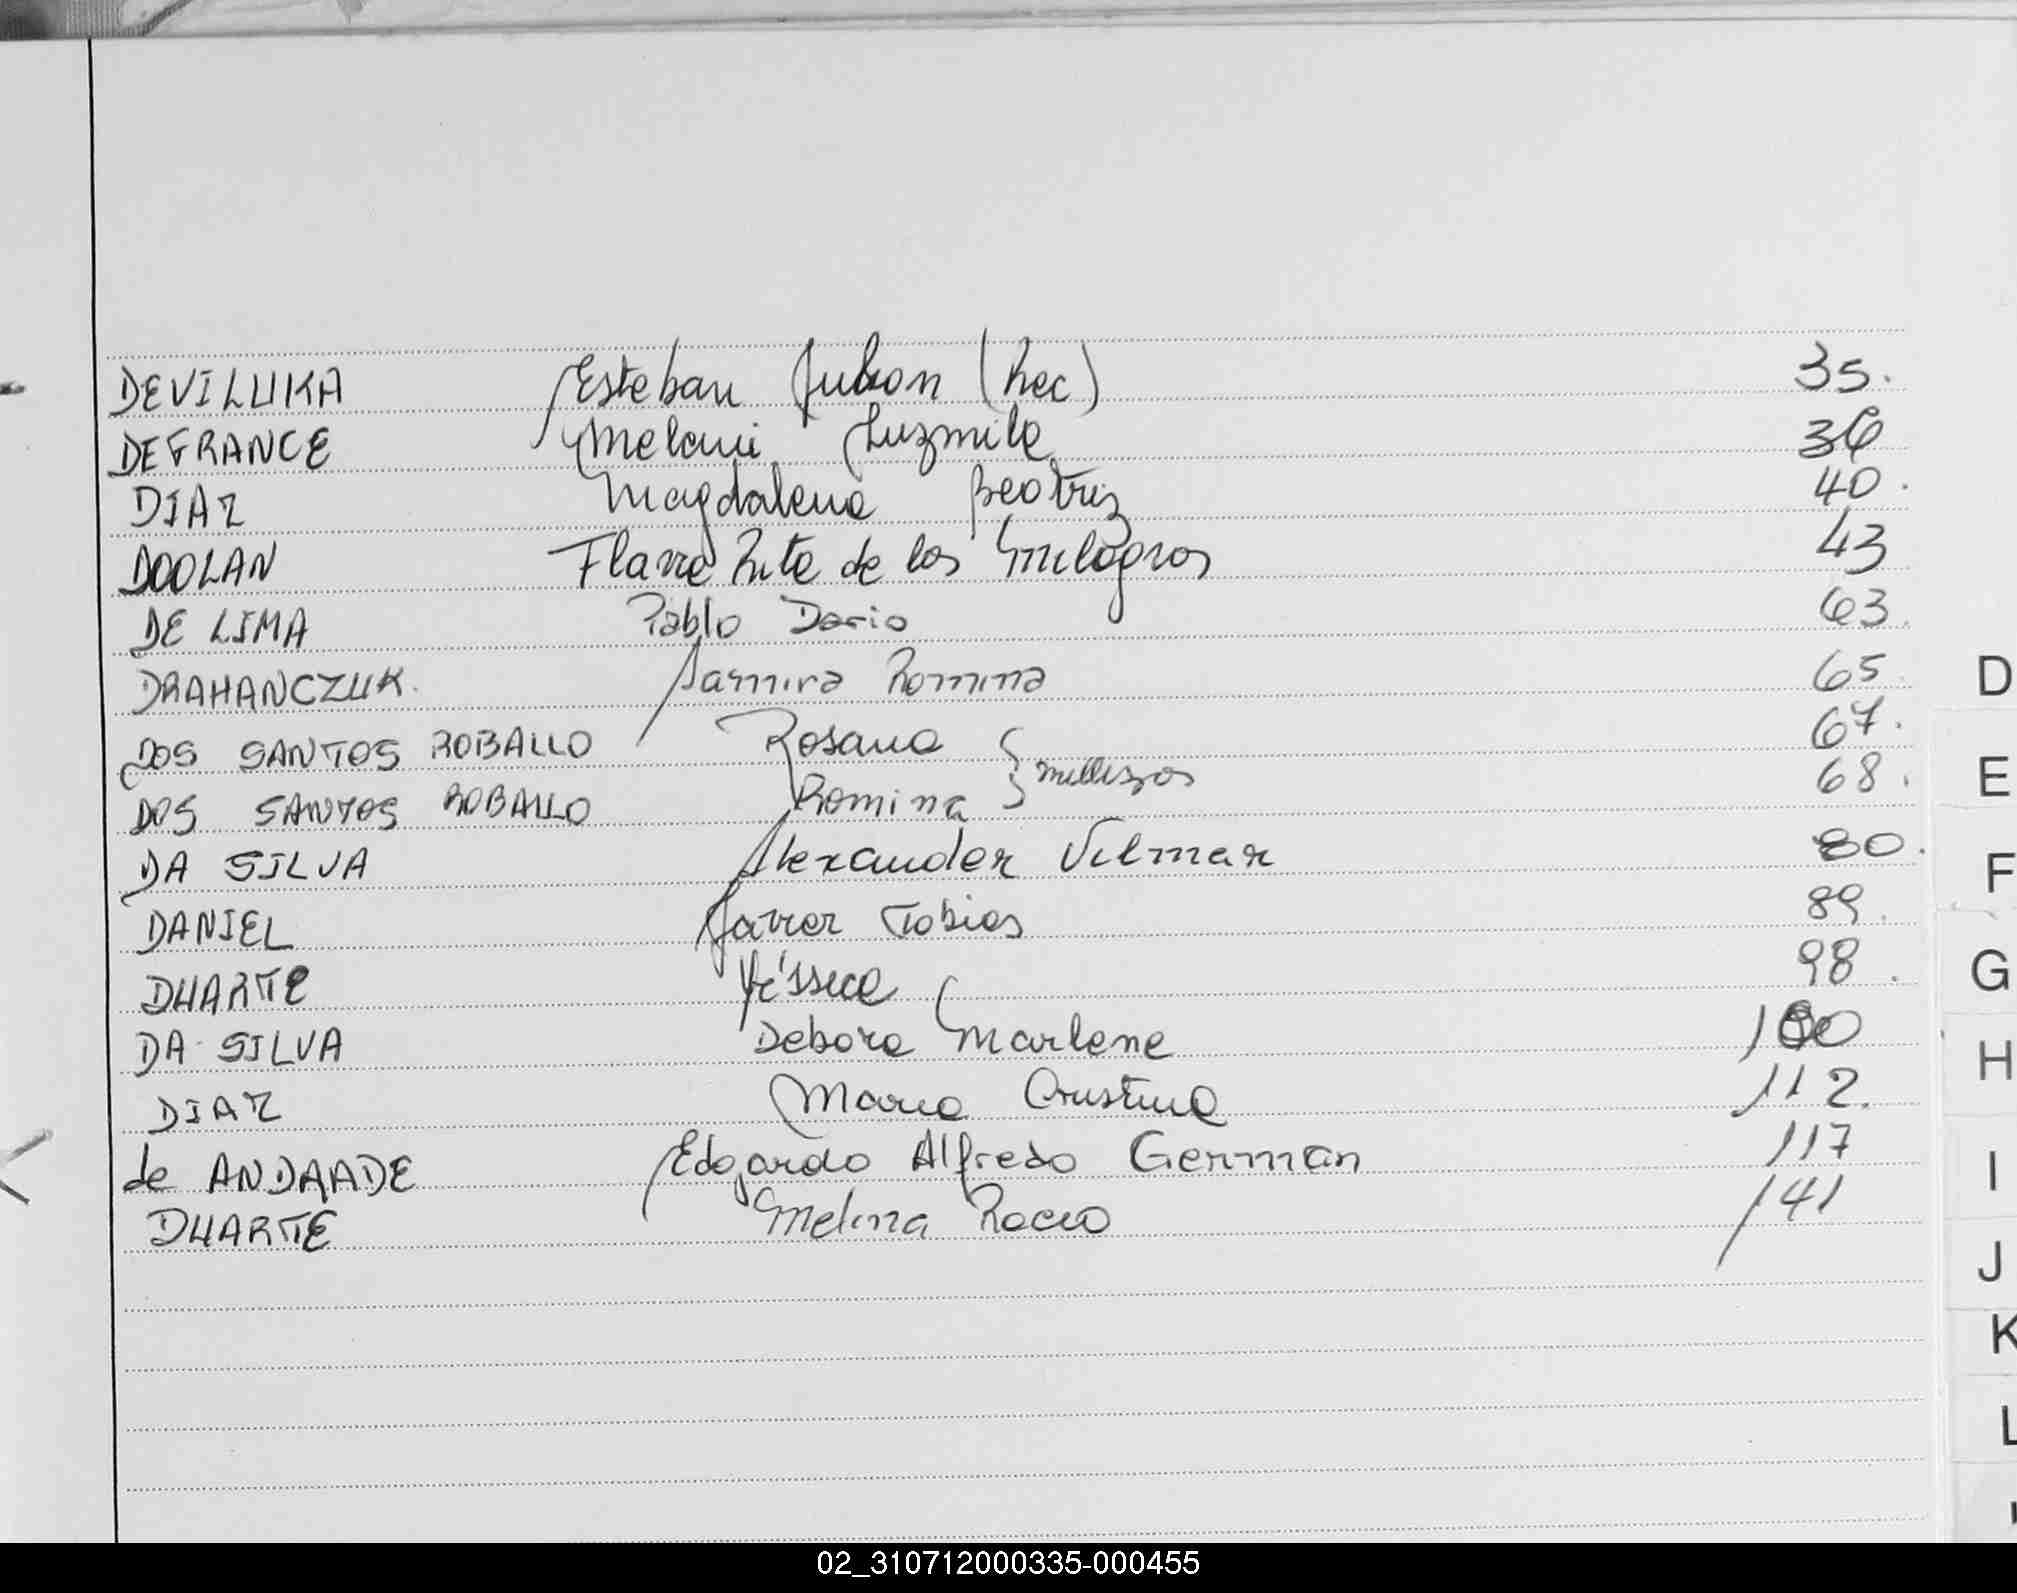 DEVILUKA Esteban Julian (Rec) 35.
DEFRANCE Melani Luzmila 36
DIAZ Magdalena Beatriz 40.
DOOLAN Flavia Rita de los Milagros 43
DE LIMA Pablo Dario 63.
DRAHANCZUK. Samira Romina 65.
DOS SANTOS ROBALLO Rosana 67.
DOS SANTOS ROBALLO Romina } mellizos 68.
DA SILVA Alexander Vilmar 80.
DANIEL Javier Tobias 89.
DUARTE Yéssica 98.
DA SILVA Debora Marlene 100
DIAZ Maria Cristina 112.
de ANDRADE Edgardo Alfredo German 117
DUARTE Melina Rocio 141
D
E
F
G
H
I
J
K
L
02_310712000335-000455